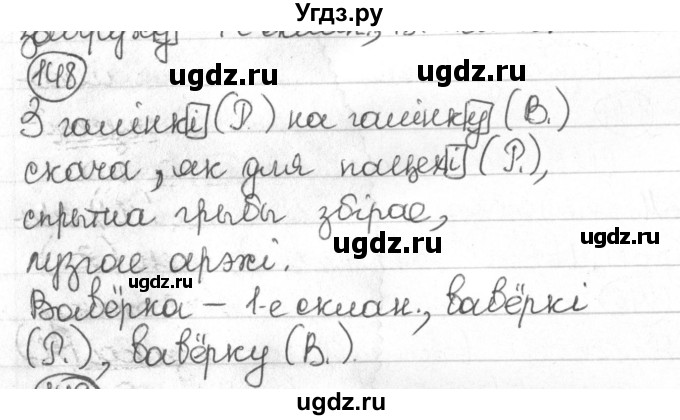 Угдз.ру
148
З галінкі (Р.) на галінку (В.)
скача, як для пацехі (Р.),
спрытна грыбы збірае,
лузгае арэхі.
Вавёрка – 1-е склан., вавёркі
(Р.), вавёрку (В.).
ugdz.ru ugdz.ru
ugdz.ru ugdz.ru
ugdz.ru ugdz.ru
ugdz.ru
ugdz.ru